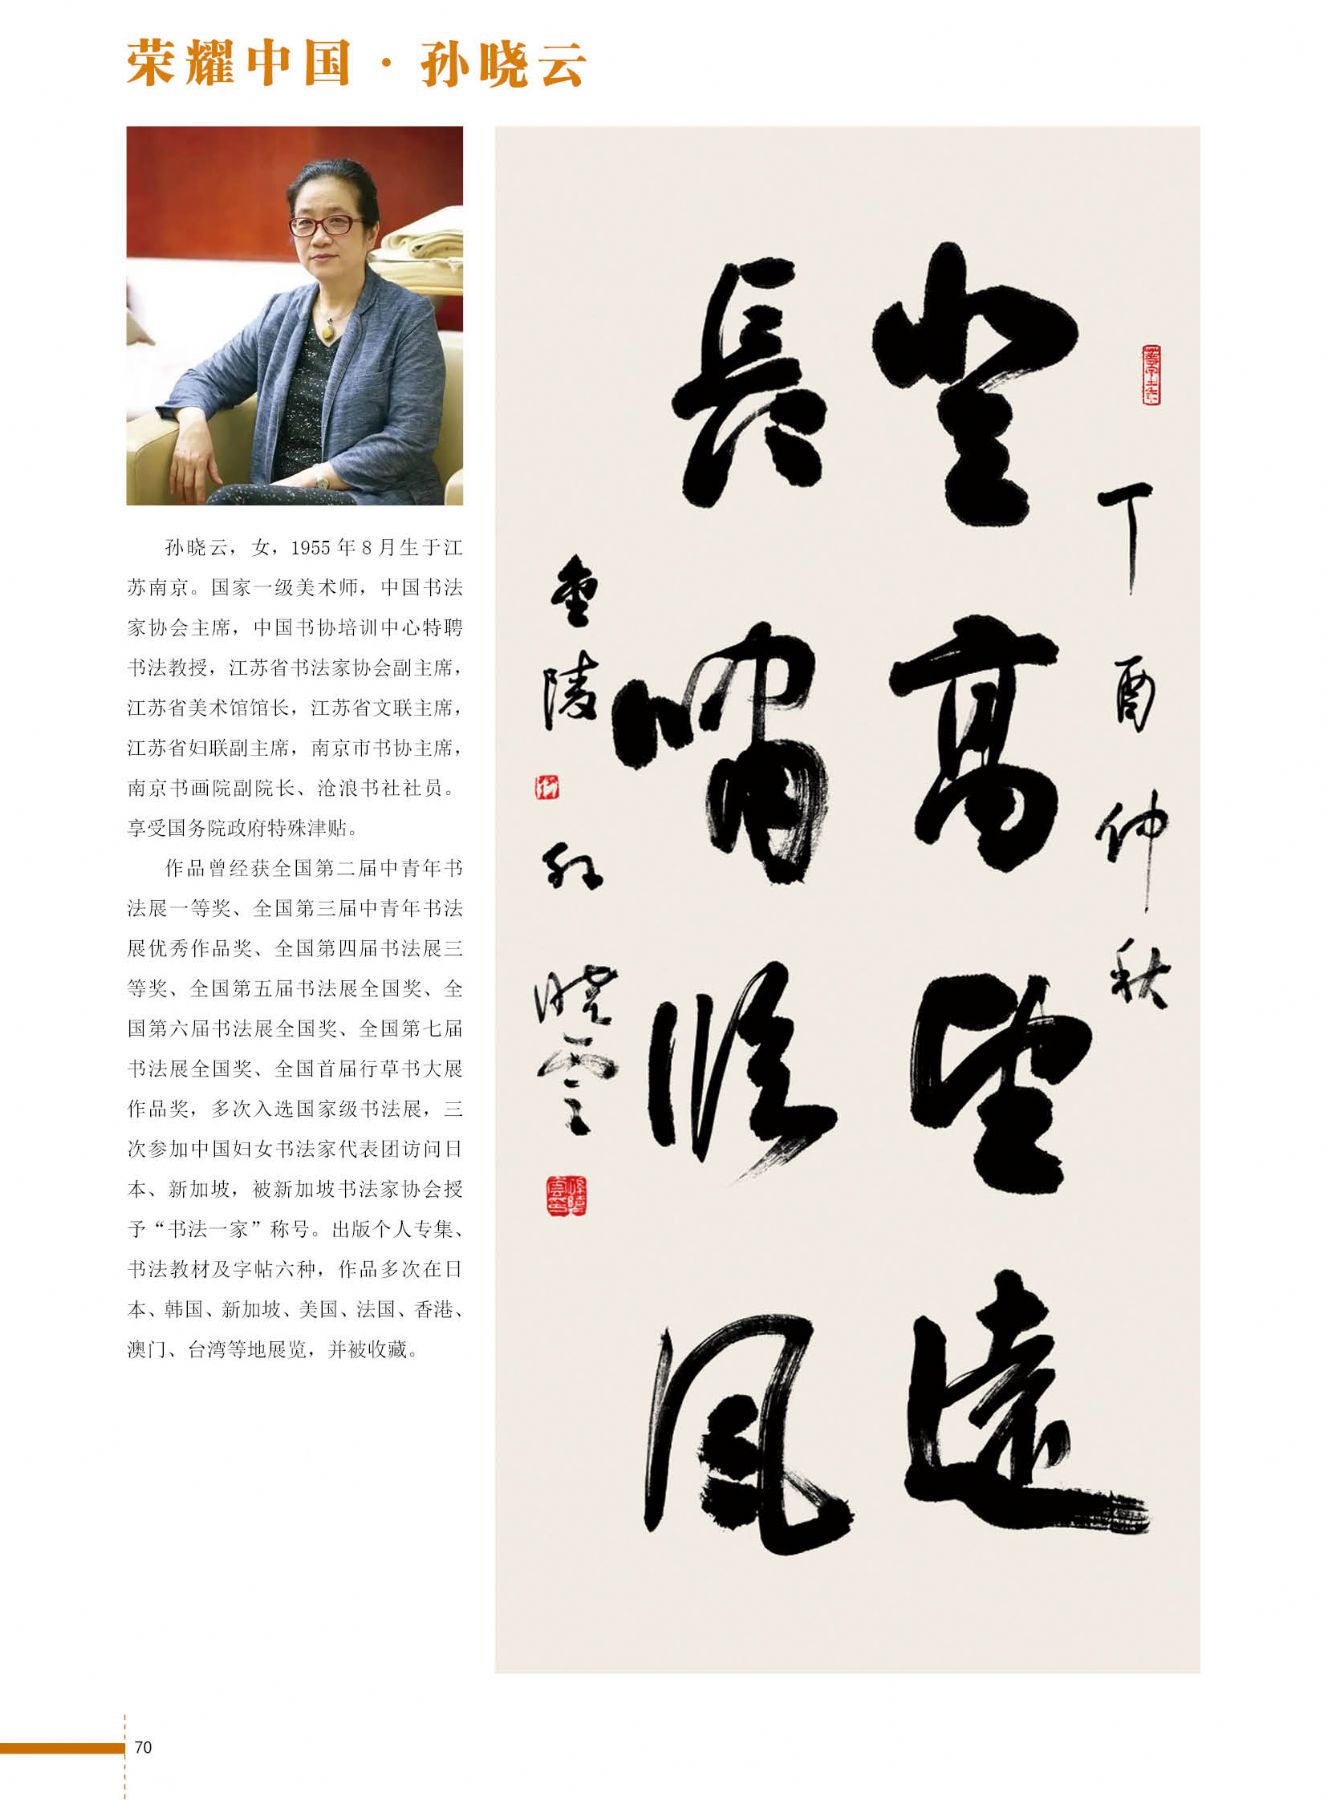 荣耀中国·孙晓云
孙晓云，女，1955年8月生于江
苏南京。国家一级美术师，中国书法
家协会主席，中国书协培训中心特聘
书法教授，江苏省书法家协会副主席，
江苏省美术馆馆长，江苏省文联主席，
江苏省妇联副主席，南京市书协主席，
南京书画院副院长、沧浪书社社员。
享受国务院政府特殊津贴。
作品曾经获全国第二届中青年书
法展一等奖、全国第三届中青年书法
展优秀作品奖、全国第四届书法展三
等奖、全国第五届书法展全国奖、全
国第六届书法展全国奖、全国第七届
书法展全国奖、全国首届行草书大展
作品奖，多次入选国家级书法展，三
次参加中国妇女书法家代表团访问日
本、新加坡，被新加坡书法家协会授
予“书法一家”称号。出版个人专集、
书法教材及字帖六种，作品多次在日
本、韩国、新加坡、美国、法国、香港、
澳门、台湾等地展览，并被收藏。
丁酉仲秋
登高望遠
長嘯臨風
金陵孫曉雲
70